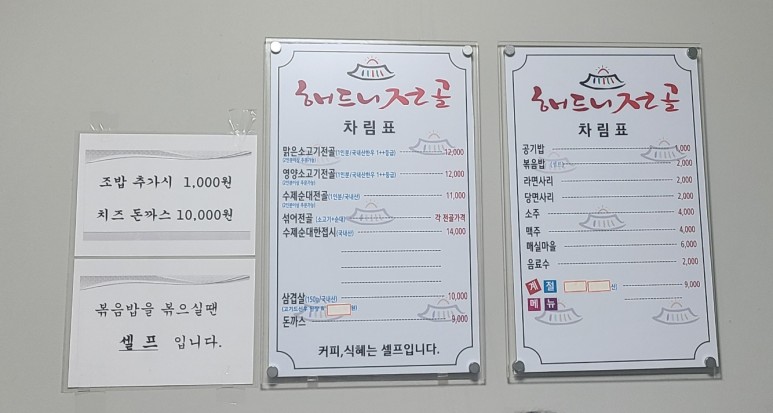 조밥 추가시 1,000원
치즈 돈까스 10,000원
볶음밥을 볶으실땐
셀프 입니다.
해드니전골
차림표
맑은소고기전골(1인분/국내산한우 1++등급) 12,000
(2인분이상 주문가능)
영양소고기전골(1인분/국내산한우 1++등급) 12,000
(2인분이상 주문가능)
수제순대전골(1인분/국내산) 11,000
(2인분이상 주문가능)
섞어전골 (소고기+순대) 각 전골가격
수제순대한접시(국내산) 14,000
삼겹살(150g/국내산) 10,000
돈까스 9,000
커피,식혜는 셀프입니다.
해드니전골
차림표
공기밥 1,000
볶음밥 2,000
라면사리 2,000
당면사리 2,000
소주 4,000
맥주 4,000
매실마을 6,000
음료수 2,000
계절 9,000
메뉴